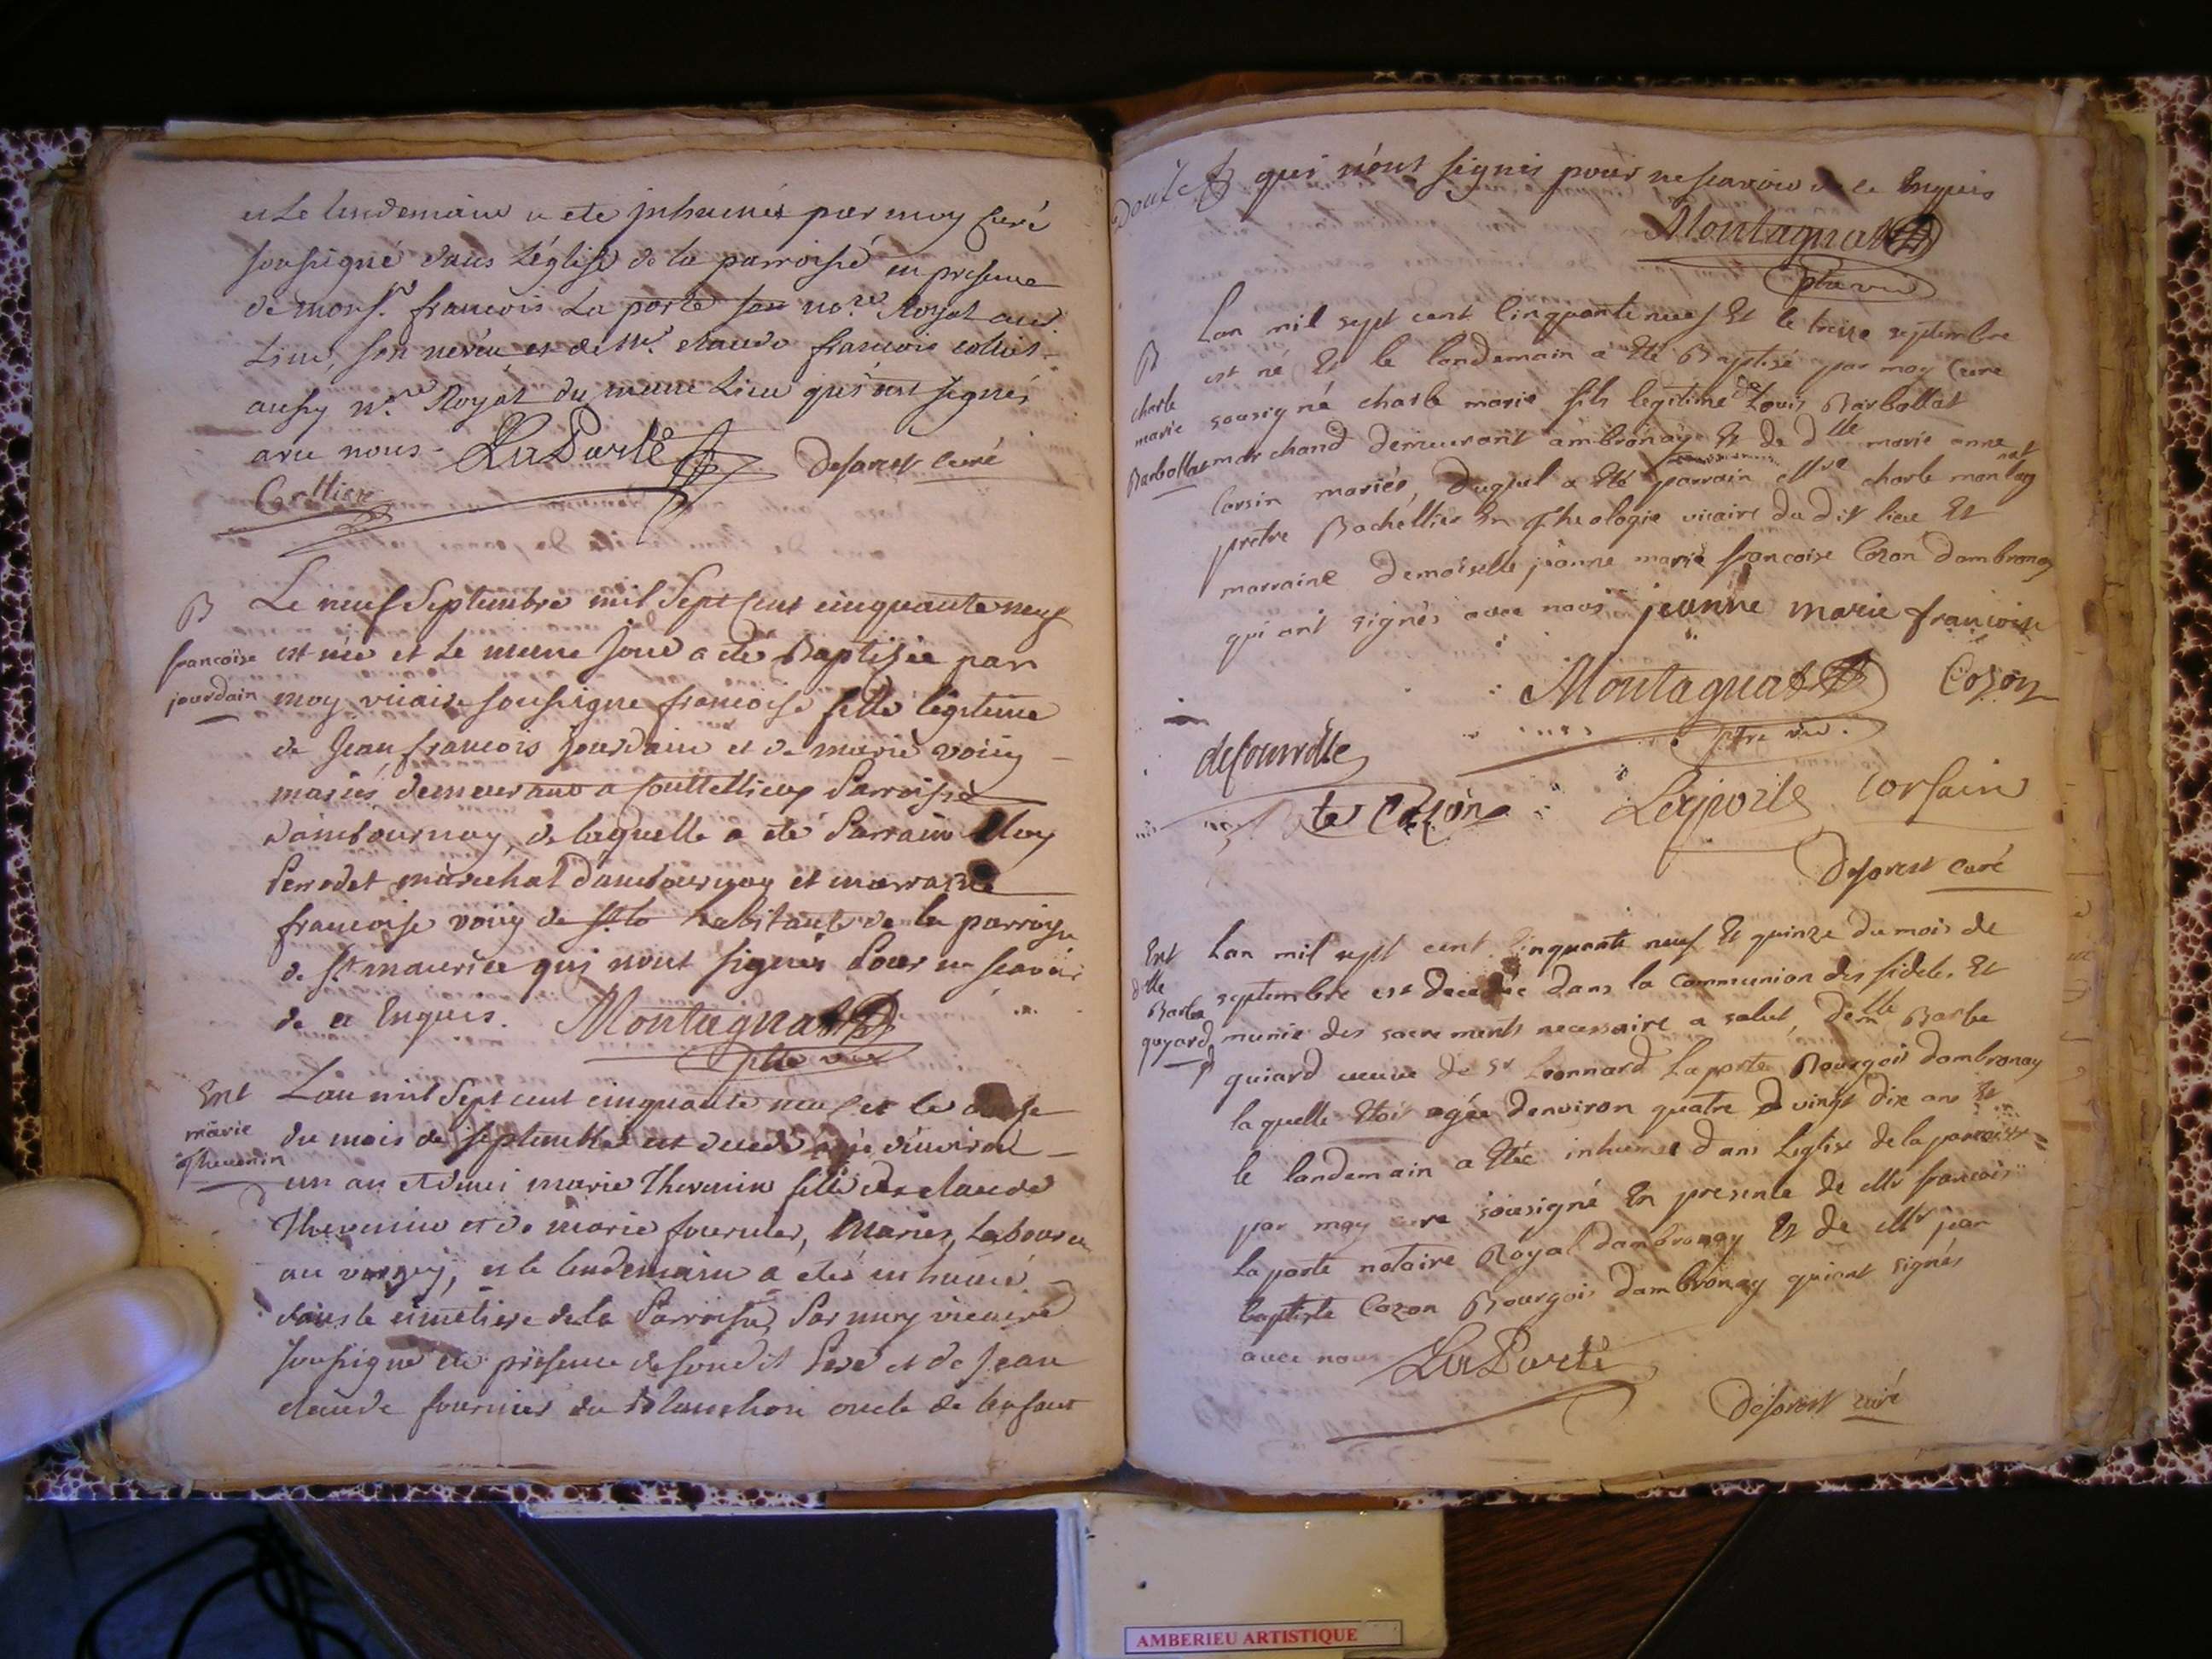 et Le lendemain a ete inhumée par moy Curé
soussigné dans L'église de la parroisse en presence
de monsr. francois La porte no.re Royal aud.
Lieu, son neveu et de Mr. claude francois collier
aussy n.re Royal du meme Lieu qui ont signés
avec nous. LaPorte deforest curé
Collier
B Le neuf Septembre mil Sept Cent cinquante neuf
francoise est née et le meme Jour a été Baptisée par
jourdain moy vicaire soussigne francoise fille legitime
de Jean francois Jourdain et de marie voüy
mariés demeurant a Parroisse
dambournay, de laquelle a été Parrain
Perrodet maréchal dambournay et marraine
francoise voüy de habitante de la parroisse
de St maurice qui n'ont signés Pour ne scavoir
de ce Enquis. Montagnat
ptre vic
Ent Lan mil Sept cent cinquante neuf et le onse
marie du mois de septembre est decedé agée d'environ
Thevenin un an et demi marie Thevenin fille de claude
Thevenin et de marie fournier, Mariés, Laboureur
au et le lendemain a été inhumé
dans le cimetiere de la Parroisse, Par moy vicaire
soussigné en présence de son dit Pere et de Jean
claude fournier du Blanchon oncle de l'enfant
qui n'ont signés pour ne scavoir de ce Enquis
Montagnat
ptre vic
Lan mil sept cent Cinquante neuf Et le treize septembre
B est né Et le landemain a été Baptisé par moy Curé
charle sousigné charle marie fils legitime de Louis Barbollat
marie
Barbollat marchand demeurant ambronay Et de dlle marie anne
Corsin mariés, duquel a été parrain Mre charle montagnat
pretre Bachellier En Theologie vicaire du dit lieu Et
marraine Demoiselle jeanne marie francoise Cozon dambronay
qui ont signés avec nous jeanne marie francoise
Montagnat Cozon
ptre vic.
Cozon Laporte corsain
deforest curé
Ent Lan mil sept cent Cinquante neuf Et quinze du mois de
dlle septembre est decedée dans la Communion des fideles Et
Barbe munie des sacrements necessaire a salut, demlle Barbe
guyard guiard veuve de Sr Leonnard Laporte Bourgois dambronay
laquelle Etoit agée denviron quatre vingt dix ans Et
le landemain a Etée inhumée dans Leglise de la parroisse
par moy cure sousigné En presence de Mr francois
Laporte notaire Royal dambronay Et de Mr jean
baptiste Cozon Bourgois dambronay qui ont signés
avec nous LaPorte
deforest curé
AMBERIEU ARTISTIQUE